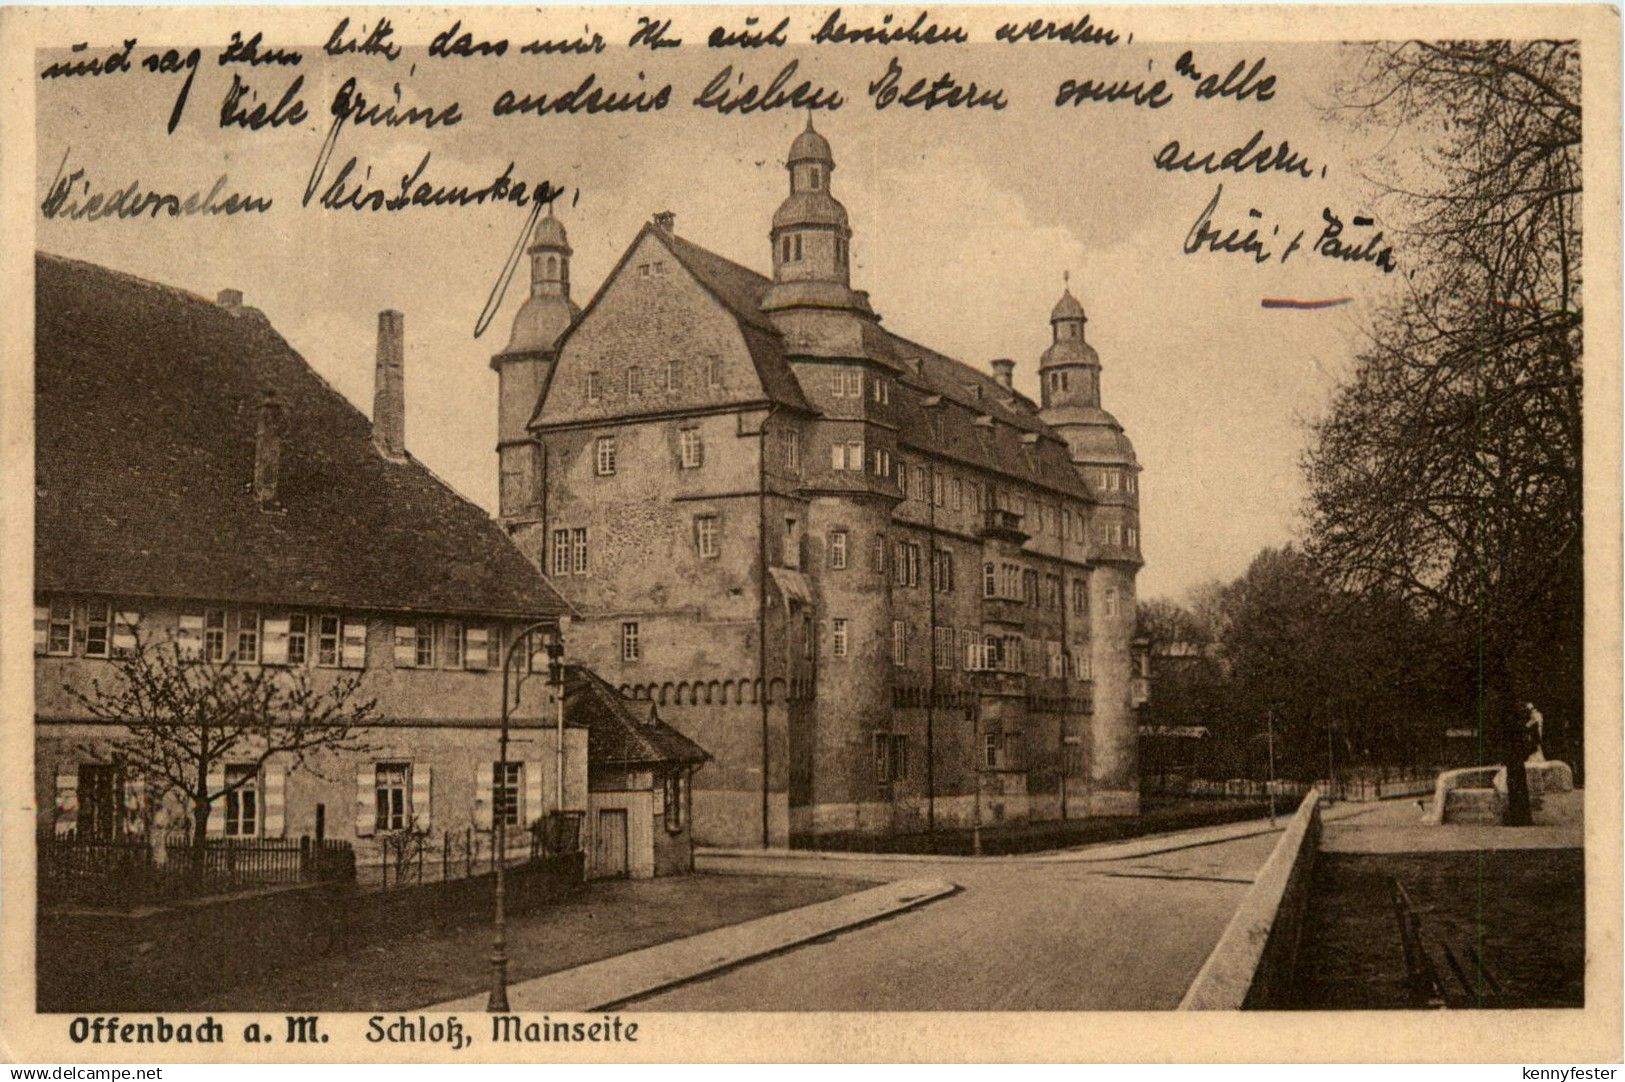 und sag Ihm bitte, dass mir Ihn auch besuchen werden.
Viele Grüne an deine lieben Eltern sowie an alle
andern.
Wiedersehen bis Samstag.
Paula.
Offenbach a. M. Schloß, Mainseite
kennyfester